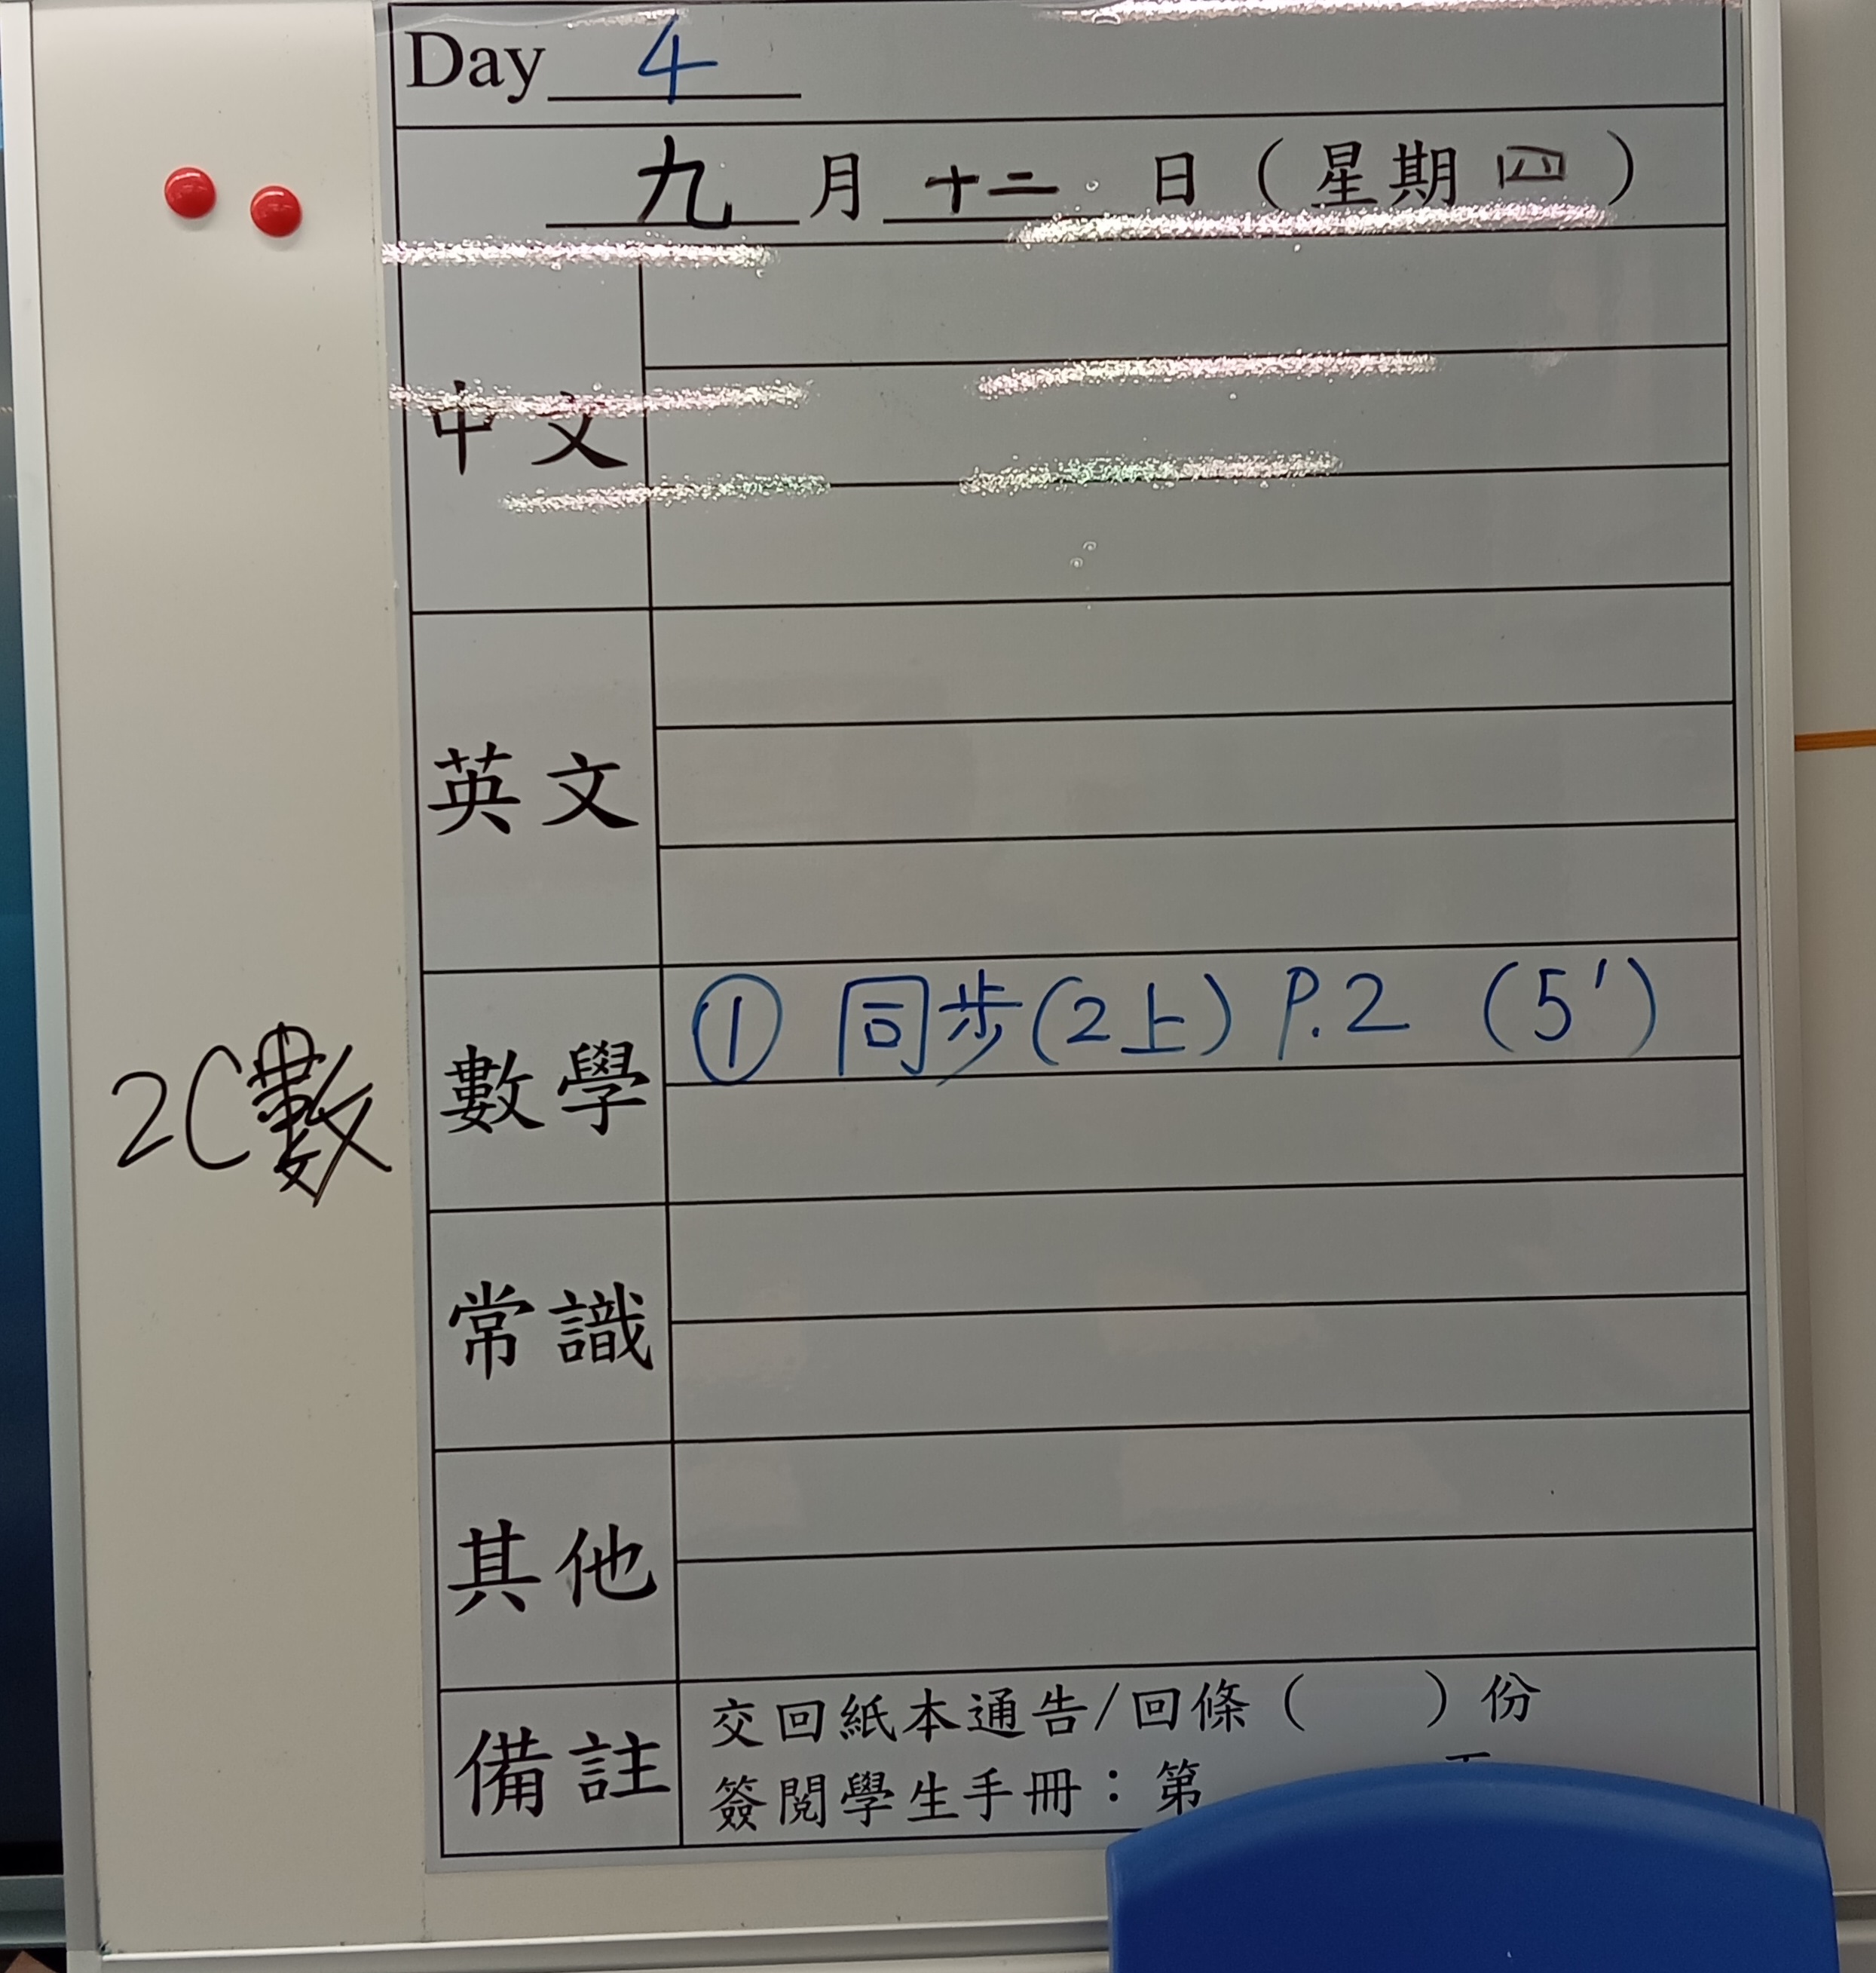 Day 4
九 月 十二 日（星期四）
中文
英文
數學
① 同步(2上) P.2 (5')
2C數
常識
其他
備註
交回紙本通告/回條（ ）份
簽閱學生手冊：第